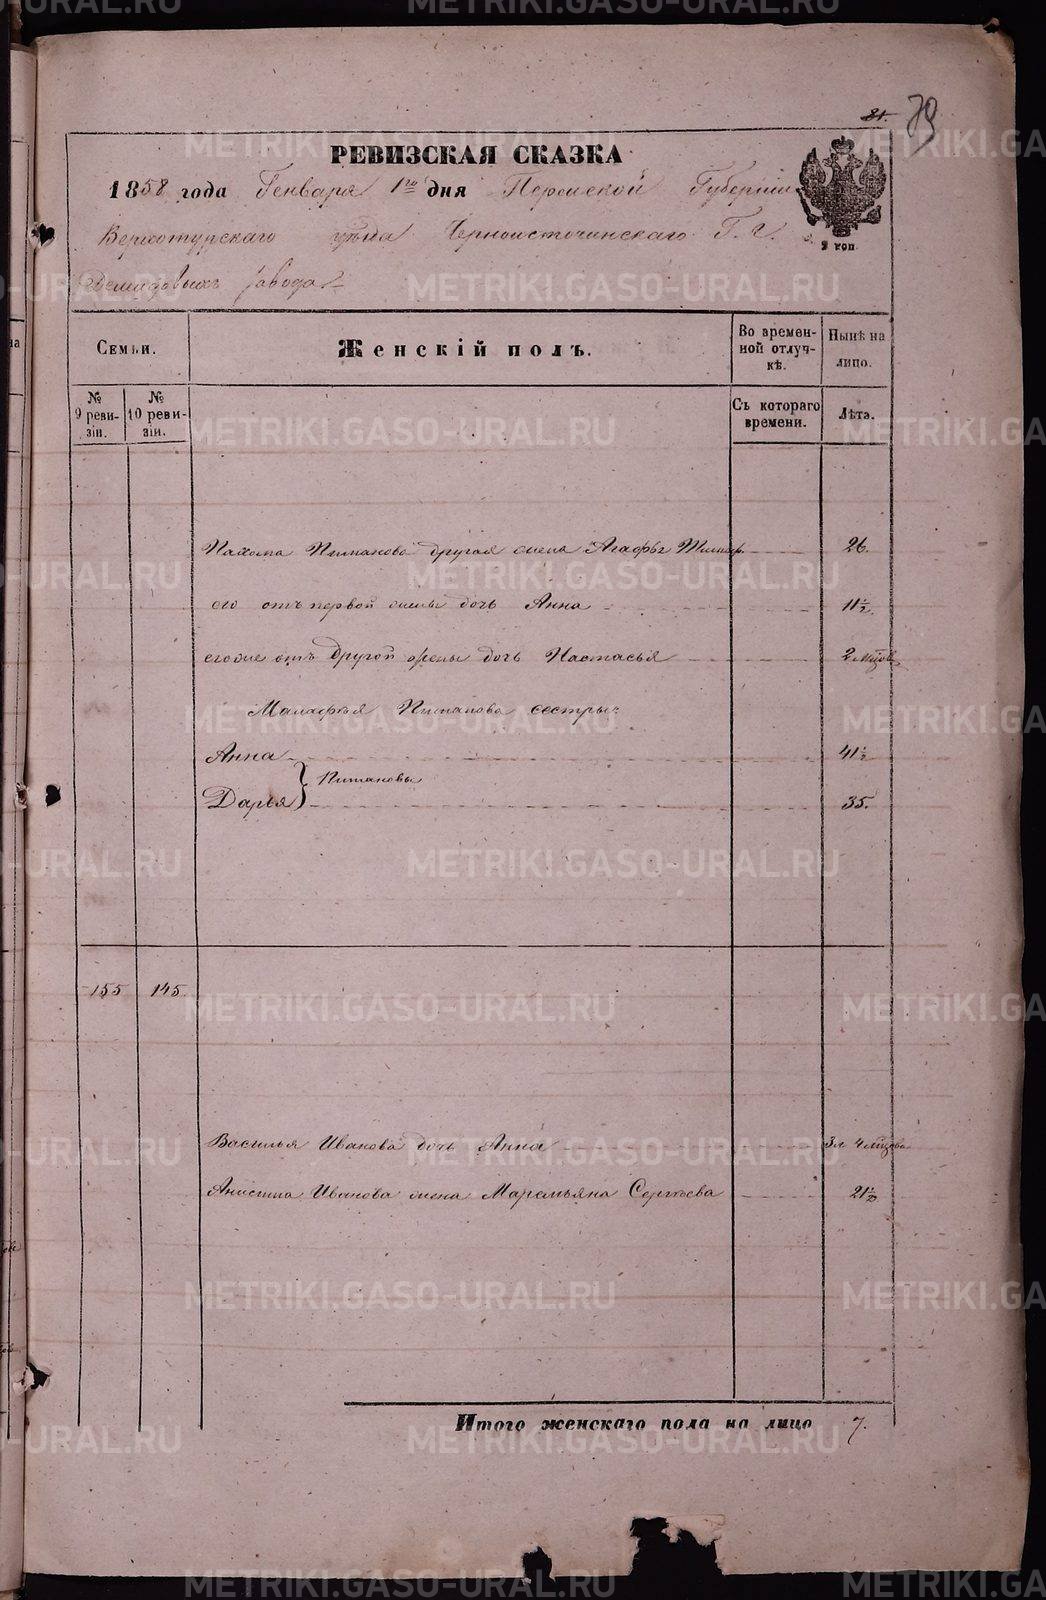 81.
79
РЕВИЗСКАЯ СКАЗКА
1858 года Генваря 1го дня Пермской Губернии
Верхотурскаго уѣзда Черноисточинскаго Г. г.
Демидовыхъ завода
2 коп
Семьи.
Женскій полъ.
Во времен-
ной отлуч-
кѣ.
Нынѣ на
лицо.
№
9 реви-
зіи.
№
10 реви-
зіи.
Съ котораго
времени.
Лѣта.
Пахома Питанова другая жена Агафья 26.
его отъ первой жены дочь Анна 11½
егоже отъ другой жены дочь Настасья 2 мцов
Малафья Питанова сестры:
Анна 41½
Питановы
Дарья 35.
155 145.
Василья Иванова дочь Анна 3 л 4 мцова
Анисима Иванова жена Маремьяна Сергѣева 21½
Итого женскаго пола на лицо 7.
METRIKI.GASO-URAL.RU